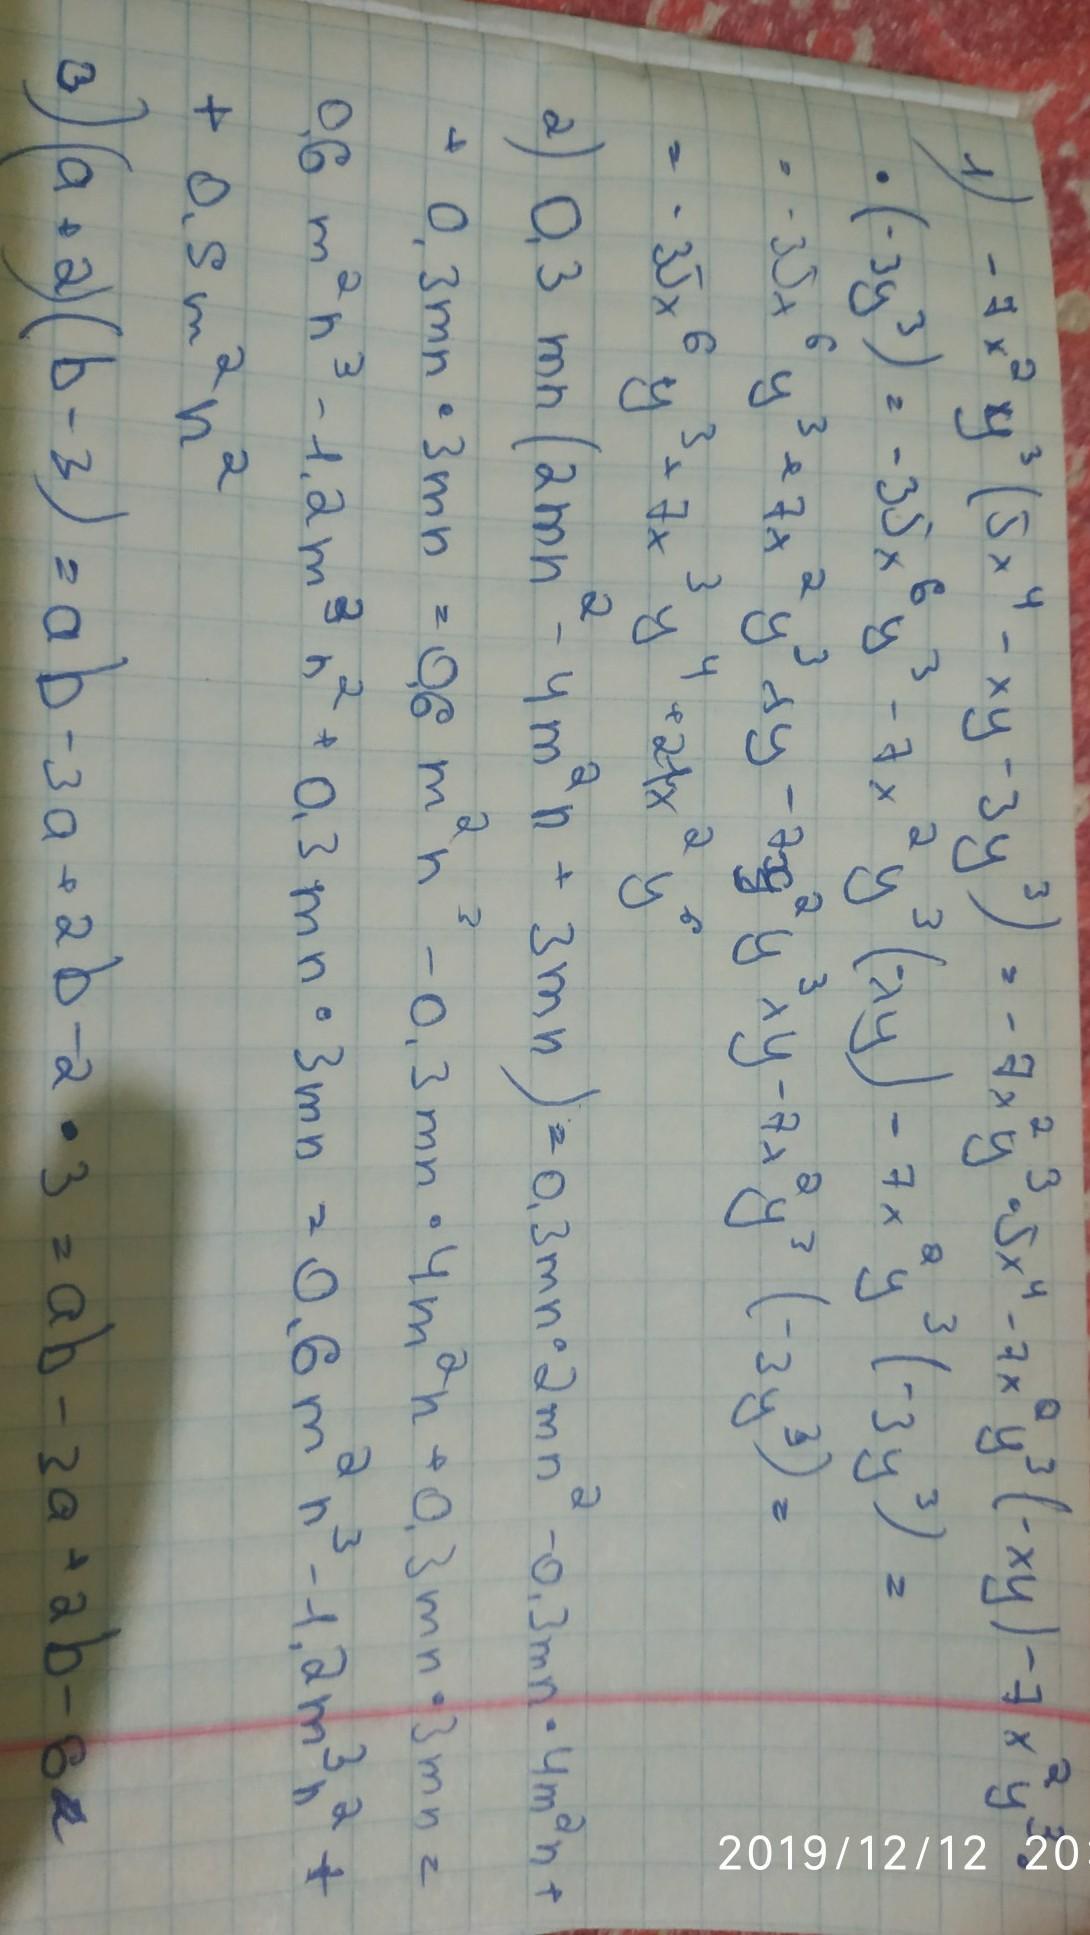 1) -7x²y³(5x⁴-xy-3y³) = -7x²y³·5x⁴-7x²y³(-xy)-7x²y³·
·(-3y³) = -35x⁶y³-7x²y³(-xy)-7x²y³(-3y³) =
= -35x⁶y³+7x²y³xy-7x²y³xy-7x²y³(-3y³) =
= -35x⁶y³+7x³y⁴+21x²y⁶
2) 0,3 mn(2mn²-4m²n+3mn) = 0,3mn·2mn²-0,3mn·4m²n+
+ 0,3mn·3mn = 0,6 m²n³-0,3mn·4m²n+0,3mn·3mn =
0,6 m²n³-1,2m³n²+0,3mn·3mn = 0,6m²n³-1,2m³n²+
+ 0,9m²n²
3) (a+2)(b-3) = ab-3a+2b-2·3 = ab-3a+2b-6
2019/12/12 20: